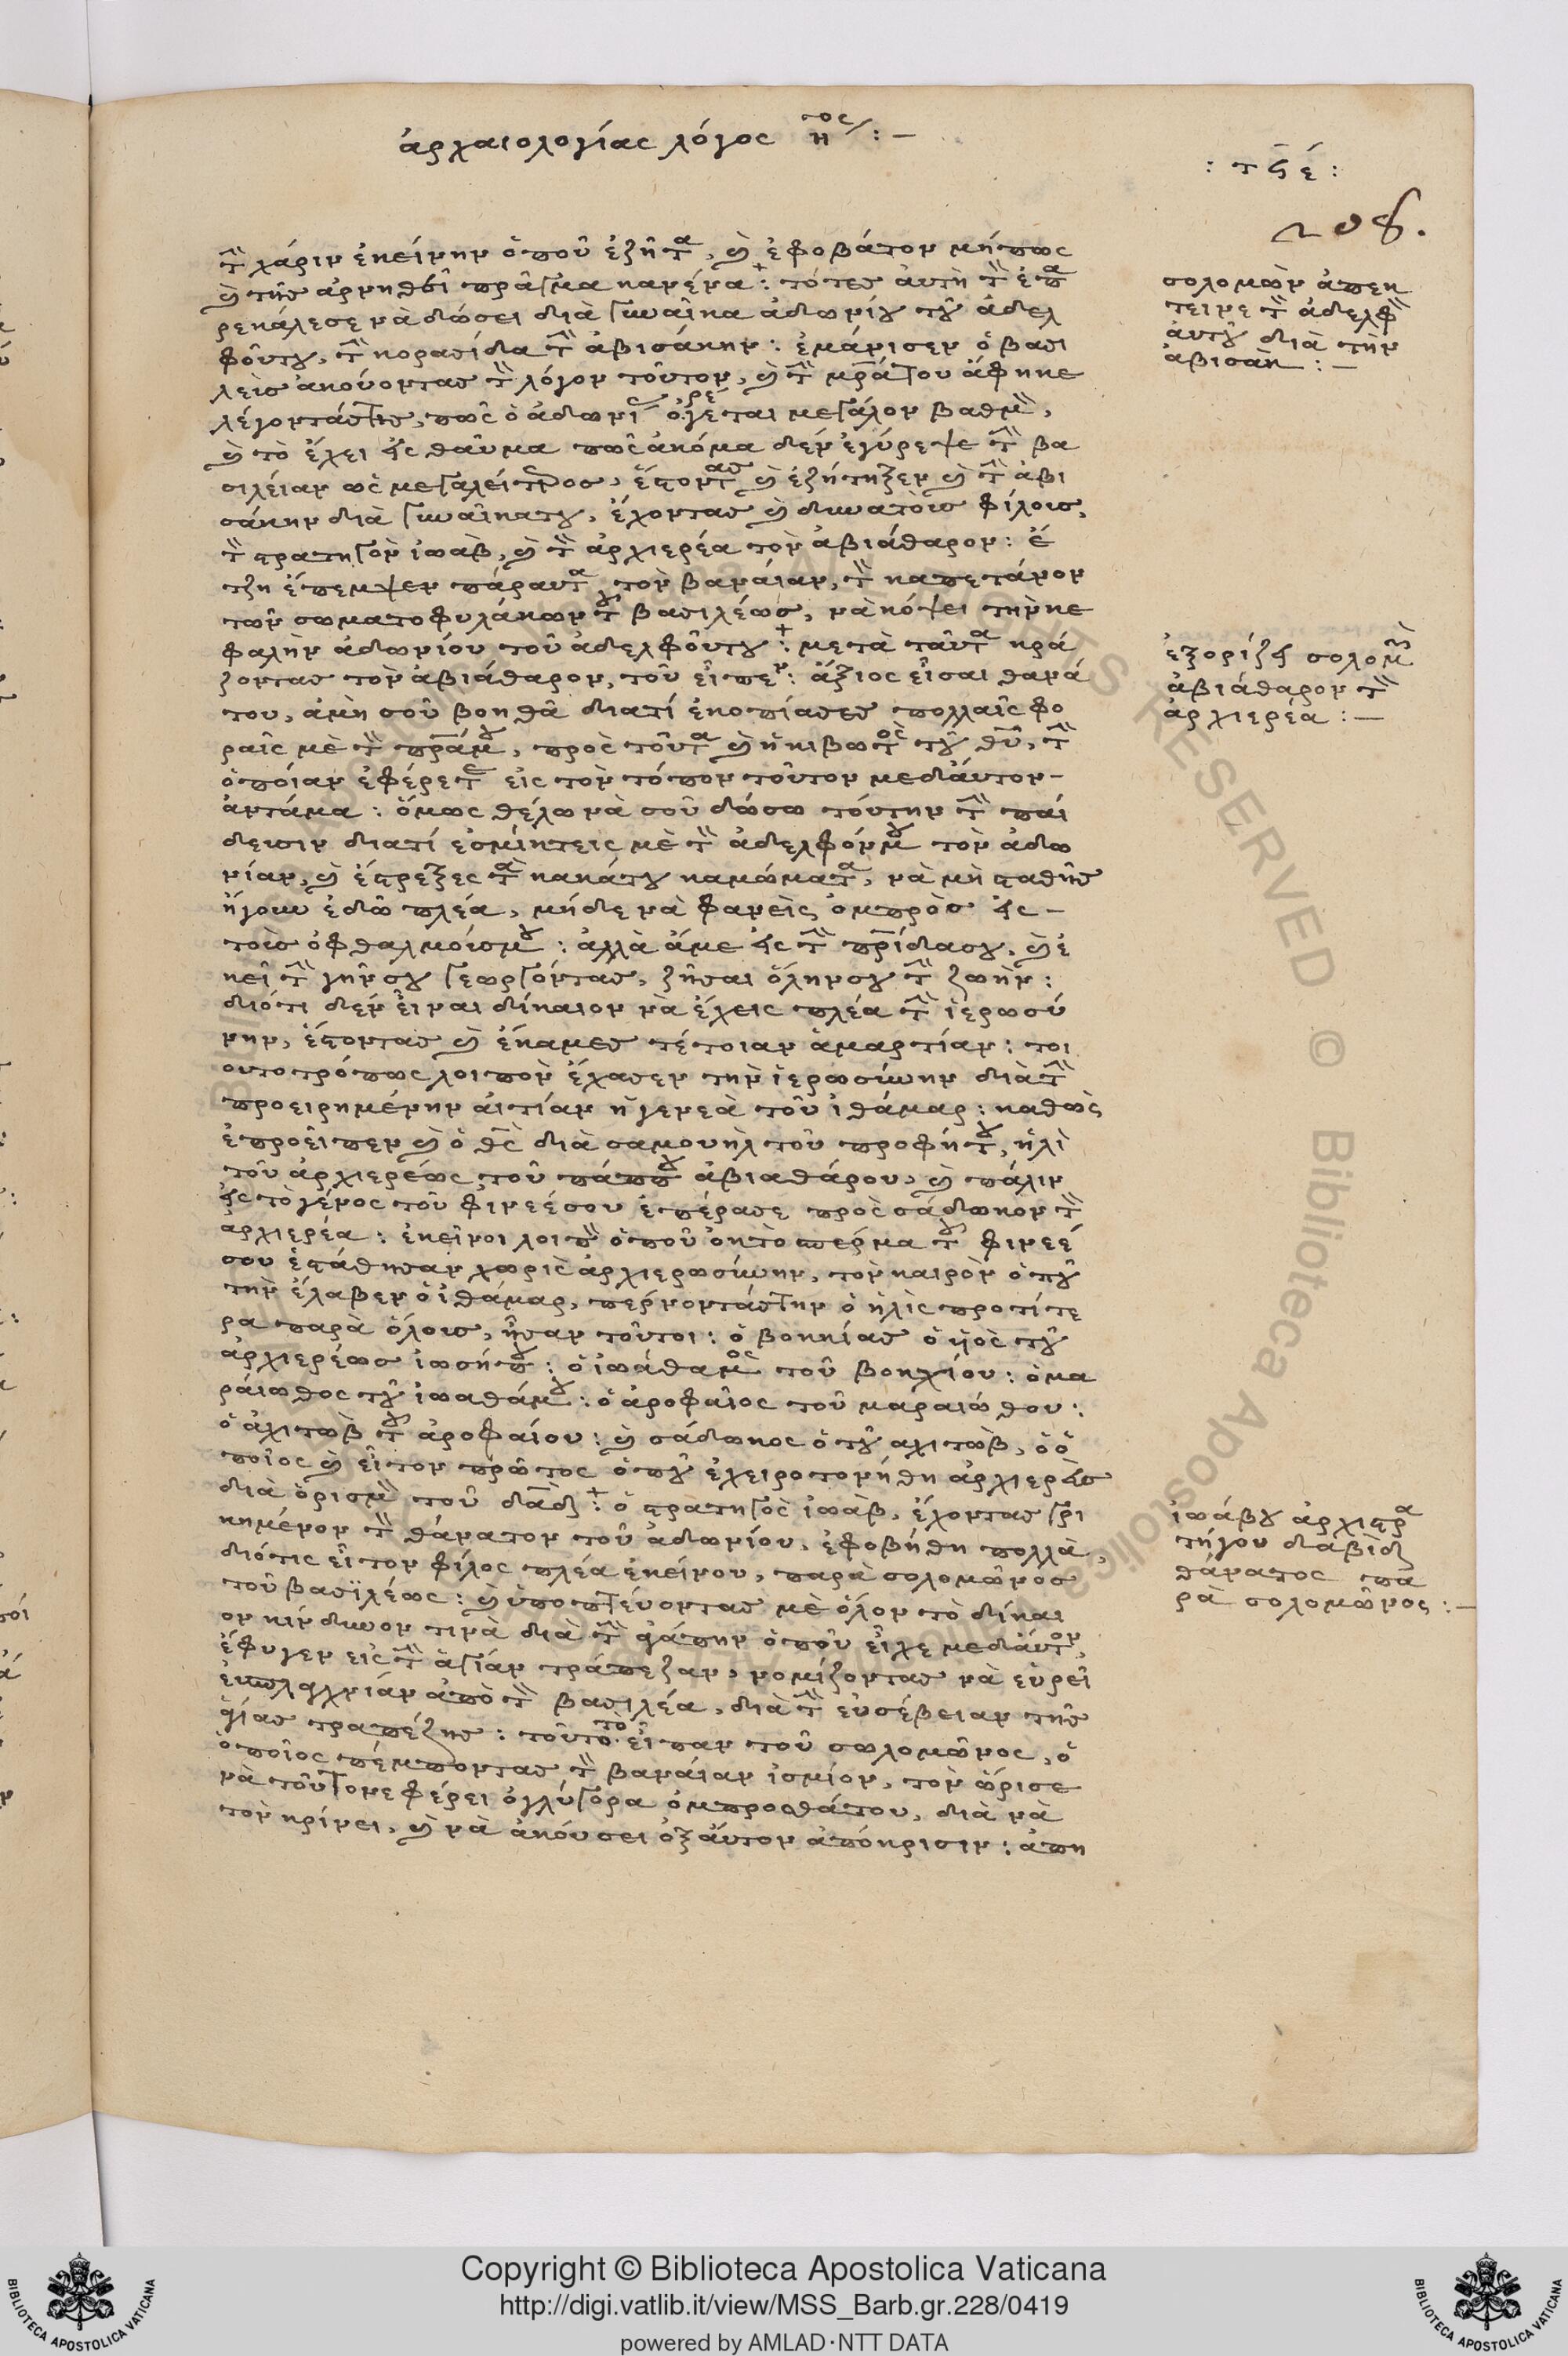 ἀρχαιολογίας λόγος η^ος :—
: τϟέ :
τ χάριν ἐκείνην ὁποῦ ἐζῆτ^α, ϗ ἐφοβάτον μήπως
ϗ τῆς ἀρνηθεῖ πρᾶγμα κανένα : τότες ἀυτὴ τ ἐπ^α
ρεκάλεσε νὰ δώσει διὰ γυναῖκα ἀδωνίȣ τȣ ἀδελ
φοῦντȣ, τ κορασίδα τ ἀβισάκην : ἐμάνισεν ὁ βασι
λεὺς ἀκούοντας τ λόγον τοῦτον, ϗ τ μρά του ἄφηκε
λέγοντάς της, πῶς ὁ ἀδωνὶς ὀρέγεται μεγάλον βαθμ,
ϗ τὸ ἔχει εἰς θαῦμα πῶς ἀκόμα δὲν ἐγύρεψε τ βα
σιλείαν ὡς μεγαλείτερος, ἔστοντ^ας ϗ ἐζήτηξεν ϗ τ ἀβι
σάκην διὰ γυναῖκατȣ, ἔχοντας ϗ δυνατοὺς φίλους,
τ στρατηγὸν ἰωὰβ, ϗ τ ἀρχιερέα τὸν ἀβιάθαρον : ἔ
τζη ἔπεμψεν πάραυτ^α τὸν βανάιαν, τ καπετάνον
τῶν σωματοφυλάκων τ^ȣ βασιλέως, νὰ κόψει τὴν κε
φαλὴν ἀδωνίου τοῦ ἀδελφοῦντȣ : μετὰ ταῦτ^α κρά
ζοντας τὸν ἀβιάθαρον, τοῦ εἶπε^ν : ἄξιος εἶσαι θανά
του, ἀμὴ σοῦ βοηθᾶ διατί ἐκοπίασες πολλαῖς φο
ραῖς μὲ τ πράμ^ȣ, πρὸς τοῦτ^α ϗ ἡ κιβωτ^ὸς τȣ θῦ, τ
ὁποίαν ἐφέρετ^ε εἰς τὸν τόπον τοῦτον μεδἀυτον-
ἀντάμα : ὅμως θέλω νὰ σοῦ δώσω τούτην τ παί
δευσιν διατί ἐσμίκτεις μὲ τ ἀδελφόνμ^ȣ τὸν ἀδω
νίαν, ϗ ἔστρεξες τ^ὰ κακάτȣ καμώματ^α, νὰ μὴ σταθῆς
ἤγουν ἐδῶ πλέα, μήδε νὰ φανεὶς ὀμπρὸς εἰς—
τοὺς ὀφθαλμούσμ^ȣ : ἀλλὰ ἄμε εἰς τ πρίδασȣ, ϗ ἐ
κεῖ τ γῆνσȣ γεωργόντας, ζῆσαι ὅληνσȣ τ ζωὴν :
διότι δὲν εἶναι δίκαιον νὰ ἔχεις πλέα τ ἱερωσύ
νην, ἔστοντας ϗ ἔκαμες τέτοιαν ἁμαρτίαν : τοι
ουτοτρόπως λοιπὸν ἔχασεν τὴν ἱερωσύνην διὰ τ
προειρημένην ἀιτίαν ἡ γενεὰ τοῦ ἰθάμαρ : καθὼς
ἐπροεῖπεν ϗ ὁ θς διὰ σαμουὴλ τοῦ προφήτ^ȣ, ἡλὶ
τοῦ ἀρχιερέως τοῦ πάππ^ȣ ἀβιαθάρου, ϗ πάλιν
εἰς τὸ γένος τοῦ φινεέσου ἐπέρασε πρὸς σάδωκον τ
ἀρχιερέα : ἐκεῖνοι λοιπ ὁποῦ ὀκτὸ σπέρμα τ^ȣ φινεέ
σου ἐστάθησαν χωρὶς ἀρχιερωσύνην, τὸν καιρὸν ὁπȣ
τὴν ἔλαβεν ὁ ἰθάμαρ, πέρνοντάς την ὁ ἡλὶς προτίτε
ρα παρὰ ὅλους, ἦσαν τοῦτοι : ὁ βοκκίας ὁ ὑιὸς τȣ
ἀρχιερέως ἰωσήπ^ȣ : ὁ ἰωάθαμ^ος τοῦ βοκχίου : ὁ μα
ράιωθος τȣ ἰωαθάμ^ȣ : ὁ ἀροφαῖος τοῦ μαραιώθου :
ὁ ἀχιτὼβ τ^ȣ ἀροφαίου : ϗ σάδωκος ὁ τȣ αχιτὼβ, ὁ ὁ
ποῖος ϗ εἶτον πρῶτος ὁπȣ ἐχειροτονήθη ἀρχιερεὺς
διὰ ὁρισμ τοῦ δαδ : ὁ στρατηγὸς ἰωὰβ, ἔχοντας γρι
κημένον τ θάνατον τοῦ ἀδωνίου, ἐφοβήθη πολλὰ,
διότις εἶτον φίλος πλέα ἐκείνου, παρὰ σολομῶνος
τοῦ βασϊλέως : ϗ ὑποπτέυοντας μὲ ὅλον τὸ δίκαι
ον κίνδυνον τινὰ διὰ τ ἀγάπην ὁποῦ εἶχε μεδἀυτ^ον,
ἔφυγεν εἰς τ ἁγίαν τράπεζαν, νομίζοντας νὰ εὑρεῖ
ἐυσπλαχνίαν ἀπὸ τ βασιλέα, διὰ τ εὐσέβειαν τῆς
ἁγίας τραπέζης : τοῦτο τὸ εἶπαν τοῦ σωλομῶνος, ὁ
ὁποῖος πέμποντας τ βανάιαν ἰσμίον, τὸν ὥρισε
νὰ τοῦ τονε φέρει ὀγλύγορα ὀμπροσθάτου, διὰ νὰ
τὸν κρίνει, ϗ νὰ ἀκόυσει ὀξἀυτον ἀπόκρισιν : ἀπη
σολομὼν ἀπεκ
τεινε τ ἀδελφ
ἀυτȣ διὰ τὴν
ἀβισὰκ :—
ἐξορίζει σολομ
ἀβιάθαρον τ
ἀρχιερέα :—
ἰωάβȣ ἀρχιστρ^α
τήγου δαβὶδ
θάνατος πα
ρὰ σολομῶνος :—
Copyright © Biblioteca Apostolica Vaticana
http://digi.vatlib.it/view/MSS_Barb.gr.228/0419
powered by AMLAD·NTT DATA
BIBLIOTECA APOSTOLICA VATICANA
BIBLIOTECA APOSTOLICA VATICANA